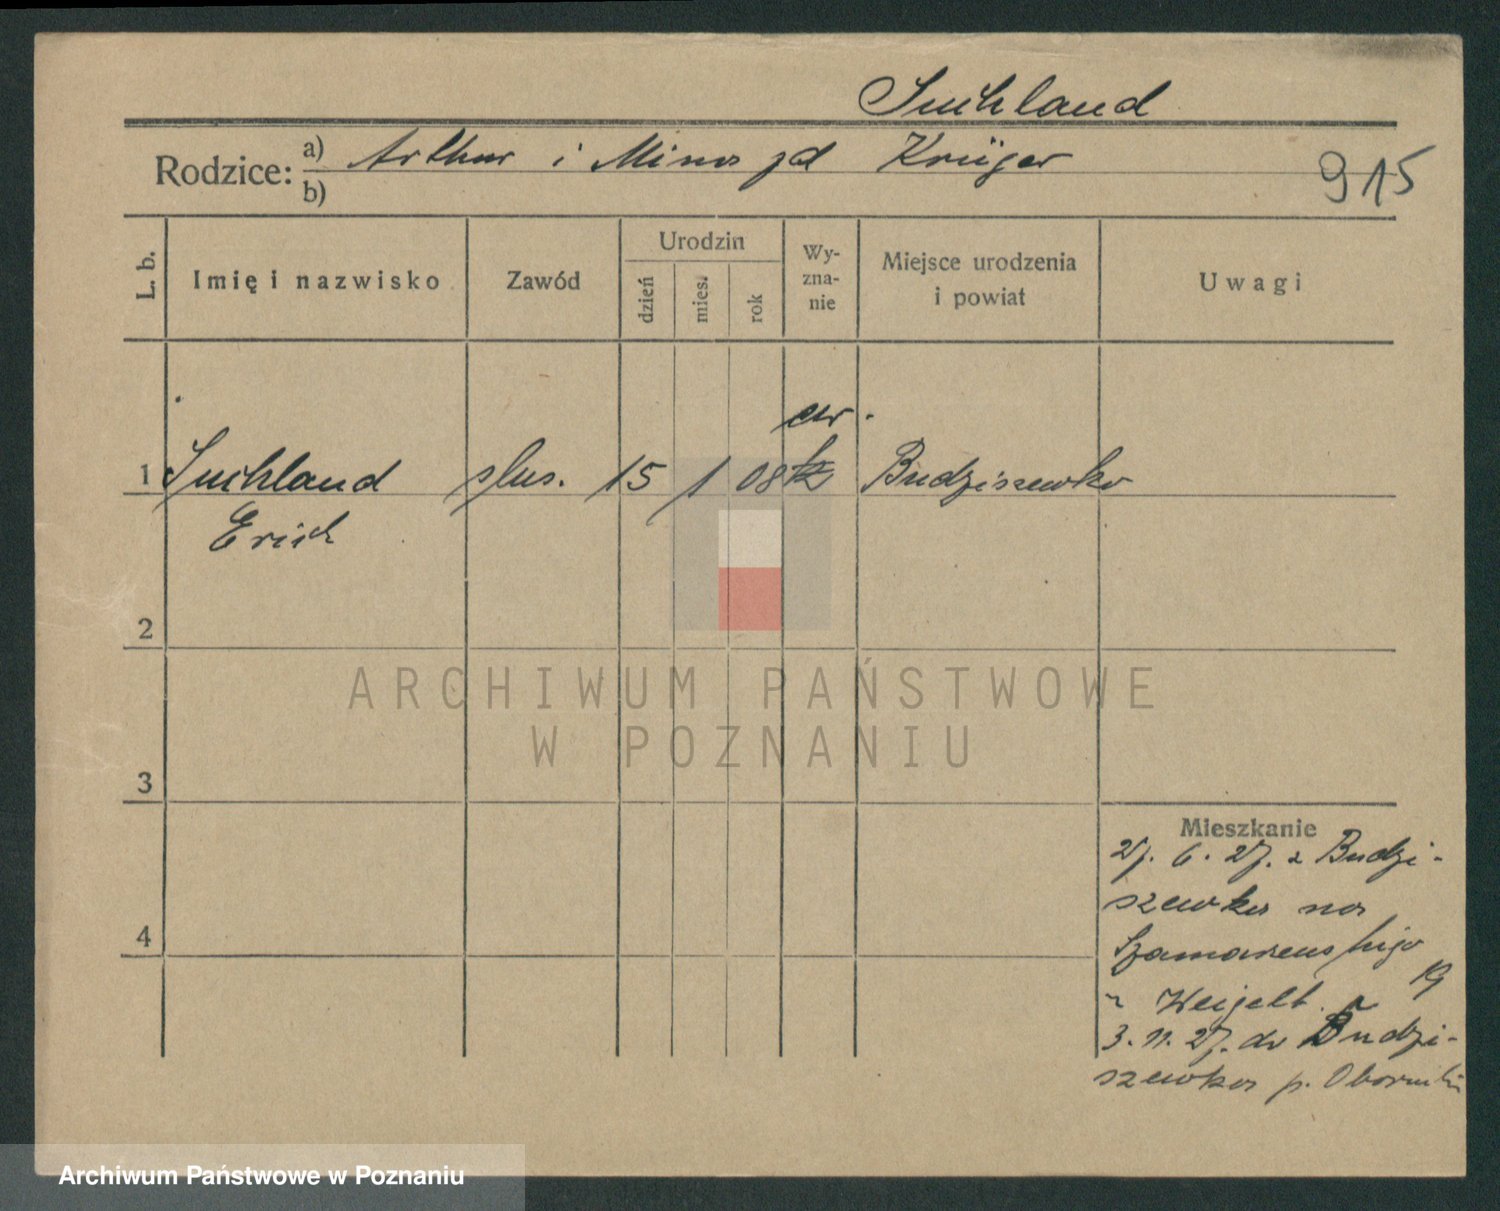 Suchland
Rodzice: a) Arthur i Mina zd Krüger
b)
915
L. b.
Imię i nazwisko
Zawód
Urodzin
dzień
mies.
rok
Wy-
zna-
nie
Miejsce urodzenia
i powiat
Uwagi
ew.
1 Suchland ślus. 15 1 08 Budziszewko
Erich
2
3
4
ARCHIWUM PAŃSTWOWE
W POZNANIU
Mieszkanie
27. 6. 27. z Budzi-
szewka na
19
Weigelt
3. 11. 27. do Budzi-
szewka p. Oborniki
Archiwum Państwowe w Poznaniu